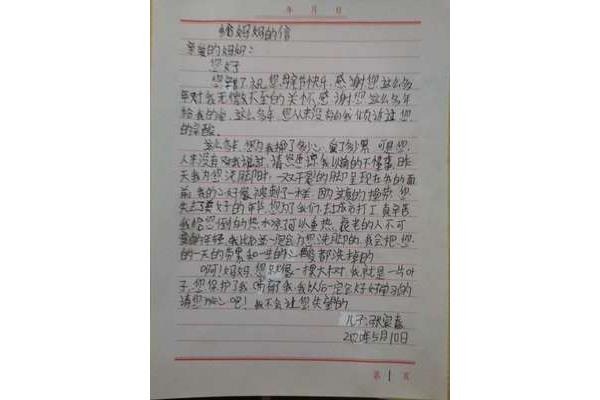 年 月 日
给妈妈的信
亲爱的妈妈：
您好
您辛苦了祝您母亲节快乐，感谢您这么多
年对我无微不至的关怀，感谢您这么多年
给我的爱，这么多年，您从来没有向我倾诉过您
的辛酸。
这么多年，您为我操了多少心，受了多少累，可是您
从来没有对我说过，请您原谅我以前的不懂事，昨
天我为您洗脚时，一双干裂的脚呈现在我的面
前，我的心好像被刺了一样，因为家庭的 您
失去了 好的年华，您为了我们，去城市打工真辛苦
我给您倒的热水凉可以重热，衰老的人不可
变的年轻，我 一定会为您洗脚的，我会把您
的一天的劳累和一生的心酸都洗掉的
啊！妈妈，您就像一棵大树，我就是一片叶
子，您保护了我 我，我以后一定会好好学习的
请您放心吧！我不会让您失望的
儿子：张
2020年5月10日
第 1 页